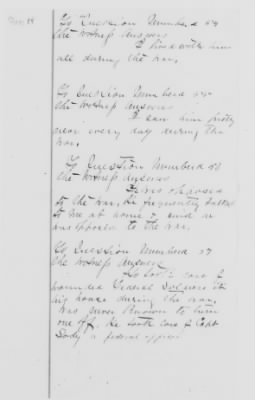 To Question Numberd 54
the Witness Answers
I lived with him
all during the war.
To Question Numberd 55
the Witness answers
I saw him pretty
near every day during the
war.
To Question Numberd 56
the Witness answers
He was opposed
to the war, he frequently talked
to me at home & said he
was opposed to the war.
To Question Numberd 57
the Witness answers
He took care of
wounded Federal Soldiers in
his house during the war.
Was never known to turn
one off. He took care of Capt
a federal officer